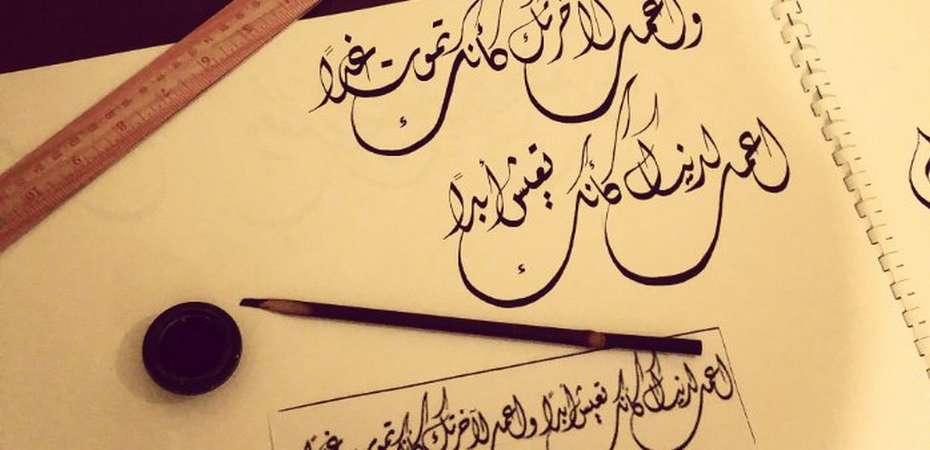 واعمل لآخرتك كأنك تموت غدًا
اعمل لدنياك كأنك تعيش أبدًا
اعمل لدنياك كأنك تعيش أبدًا واعمل لآخرتك كأنك تموت غدًا